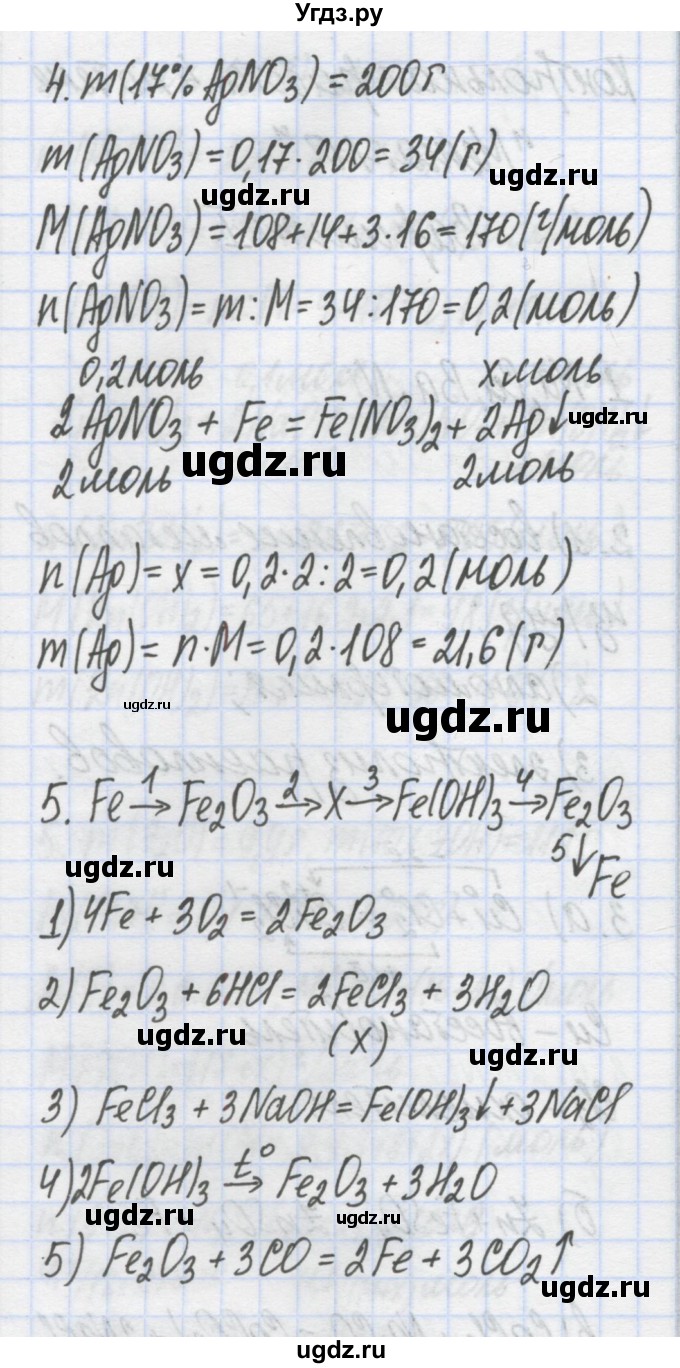 Угдз.ру
4. m(17% AgNO₃) = 200г
m(AgNO₃) = 0,17·200 = 34(г)
ugdz.ru ugdz.ru
M(AgNO₃) = 108+14+3·16 = 170(г/моль)
n(AgNO₃) = m:M = 34:170 = 0,2(моль)
0,2моль xмоль
ugdz.ru
2AgNO₃ + Fe = Fe(NO₃)₂ + 2Ag↓
ugdz.ru
2моль 2моль
n(Ag) = x = 0,2·2:2 = 0,2(моль)
ugdz.ru
m(Ag) = n·M = 0,2·108 = 21,6(г)
ugdz.ru ugdz.ru
5. Fe →¹ Fe₂O₃ →² X →³ Fe(OH)₃ →⁴ Fe₂O₃
ugdz.ru
5↓
Fe
1) 4Fe + 3O₂ = 2Fe₂O₃
2) Fe₂O₃ + 6HCl = 2FeCl₃ + 3H₂O
ugdz.ru (X) ugdz.ru
3) FeCl₃ + 3NaOH = Fe(OH)₃↓ + 3NaCl
4) 2Fe(OH)₃ →t° Fe₂O₃ + 3H₂O
ugdz.ru ugdz.ru
5) Fe₂O₃ + 3CO = 2Fe + 3CO₂↑
ugdz.ru
ugdz.ru